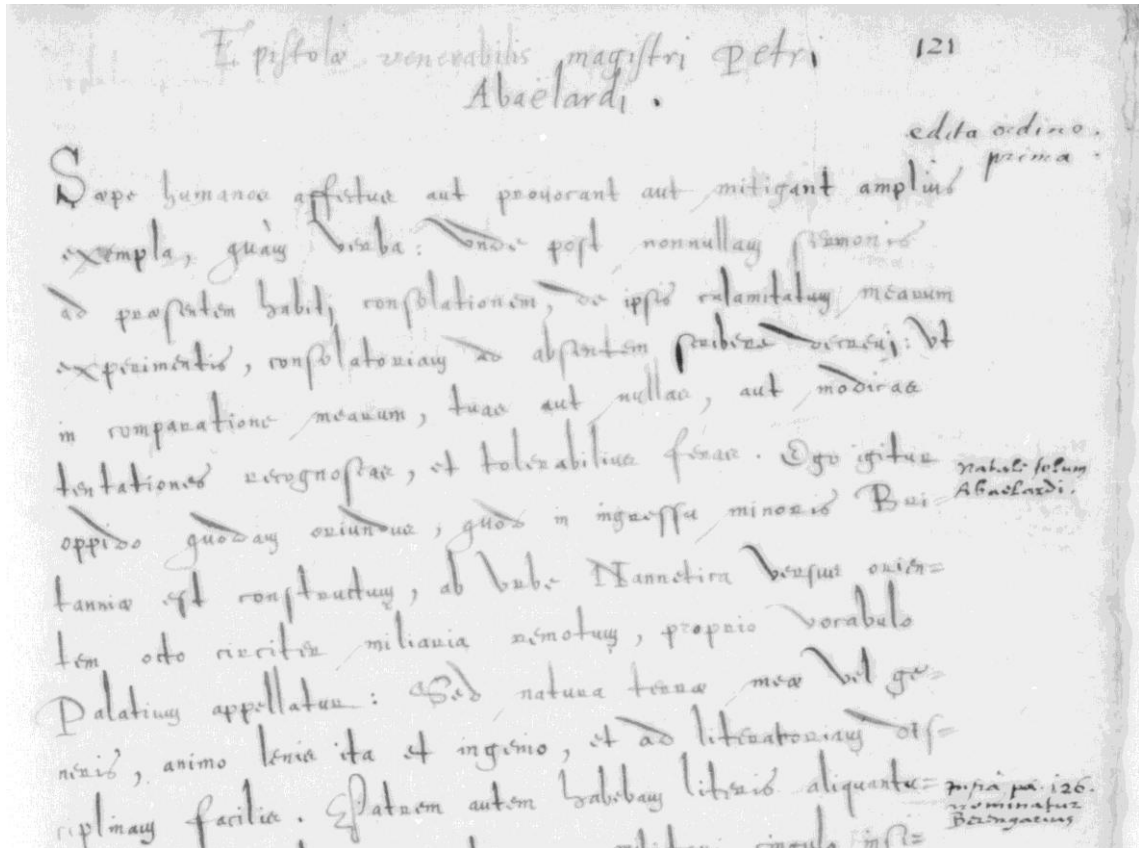 Epistolæ venerabilis magistri Petri
121
Abaëlardi.
edita ordine
prima
Sæpe humanos affectus aut provocant aut mitigant amplius
exempla, quàm verba: Unde post nonnullam sermonis
ad præsentem habiti consolationem, de ipsis calamitatum mearum
experimentis, consolatoriam ad absentem scribere decrevi: Vt
in comparatione mearum, tuas aut nullas, aut modicas
tentationes recognoscas, et tolerabilius feras. Ego igitur
natale solum
Abaëlardi.
oppido quodam oriundus, quod in ingressu minoris Bri-
tanniæ est constructum, ab Vrbe Nannetica versus orien=
tem octo circiter miliaria remotum, proprio vocabulo
Palatium appellatur: Sed natura terræ meæ vel ge=
neris, animo lenis ita et ingenio, et ad literatoriam dis=
ciplinam facilis. Patrem autem habebam literis aliquantu=
infrà pa. 126.
nominatur
Berengarius
militari cingulo insi=